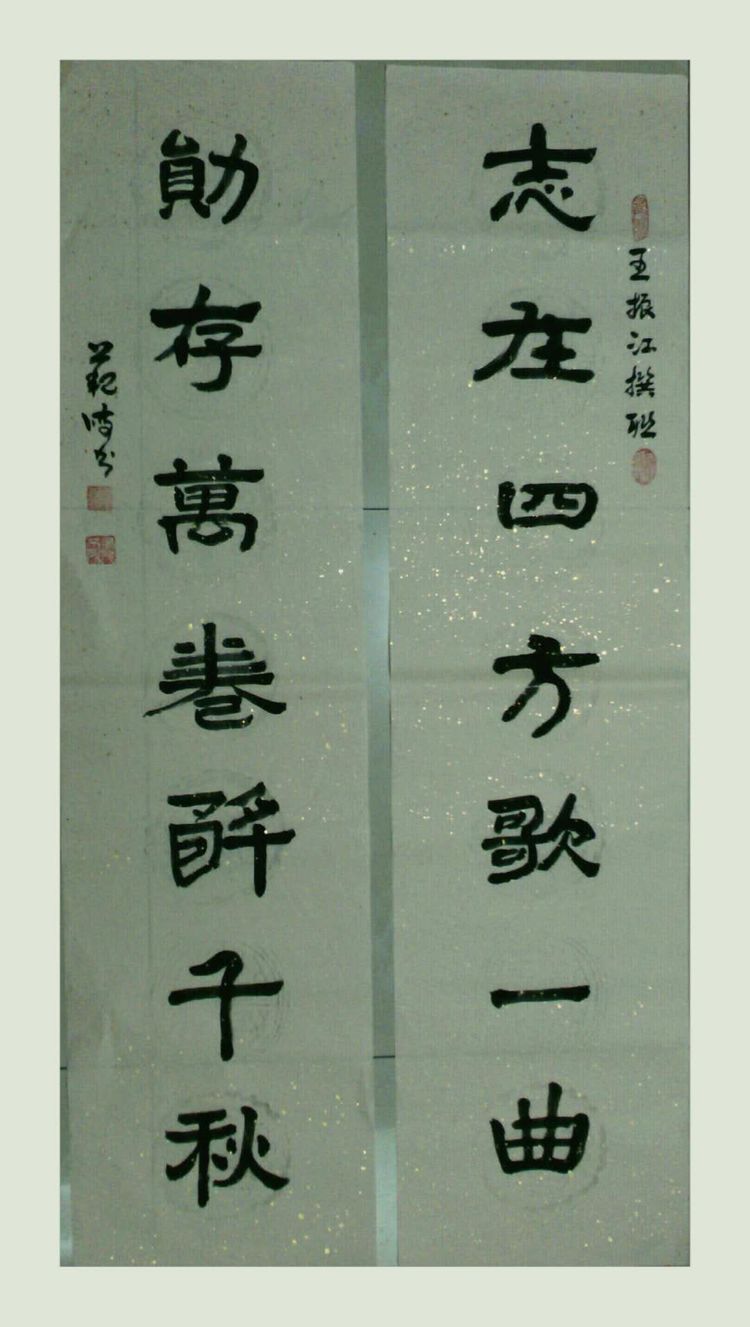 王振江撰联
志在四方歌一曲
勛存萬卷醉千秋
範波书